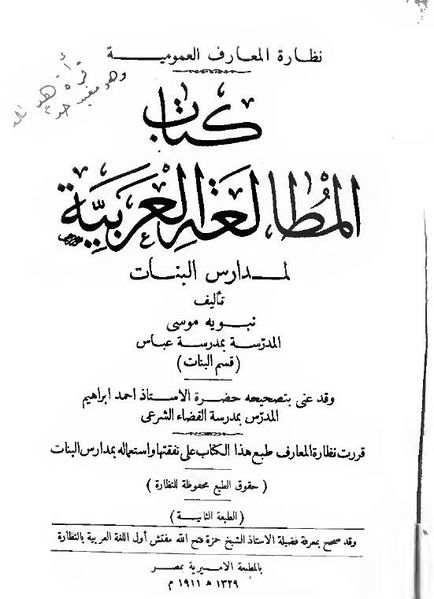 نظارة المعارف العمومية
كتاب
المطالعة العربية
لمدارس البنات
تأليف
نبويه موسى
المدرّسة بمدرسة عباس
(قسم البنات)
وقد عنى بتصحيحه حضرة الاستاذ احمد ابراهيم
المدرّس بمدرسة القضاء الشرعى
قررت نظارة المعارف طبع هذا الكتاب على نفقتها واستعماله بمدارس البنات
(حقوق الطبع محفوظة للنظارة)
(الطبعة الثانية)
وقد صحح بمعرفة فضيلة الاستاذ الشيخ حمزة فتح الله مفتش أول اللغة العربية بالنظارة
بالمطبعة الاميرية بمصر
١٣٢٩ ه ١٩١١ م